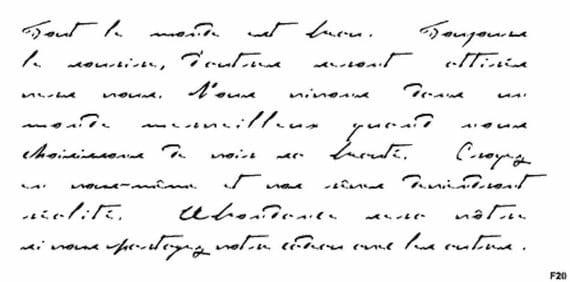 Tout le monde est beau. Toujours
le sourire, d'autres seront attirés
vers vous. Nous vivons dans un
monde merveilleux quand nous
choisissons de voir sa beauté. Croyez
en vous-même et vos rêves deviendront
réalité. Abondance sera vôtre
si vous partagez votre cadeau avec les autres.
F20